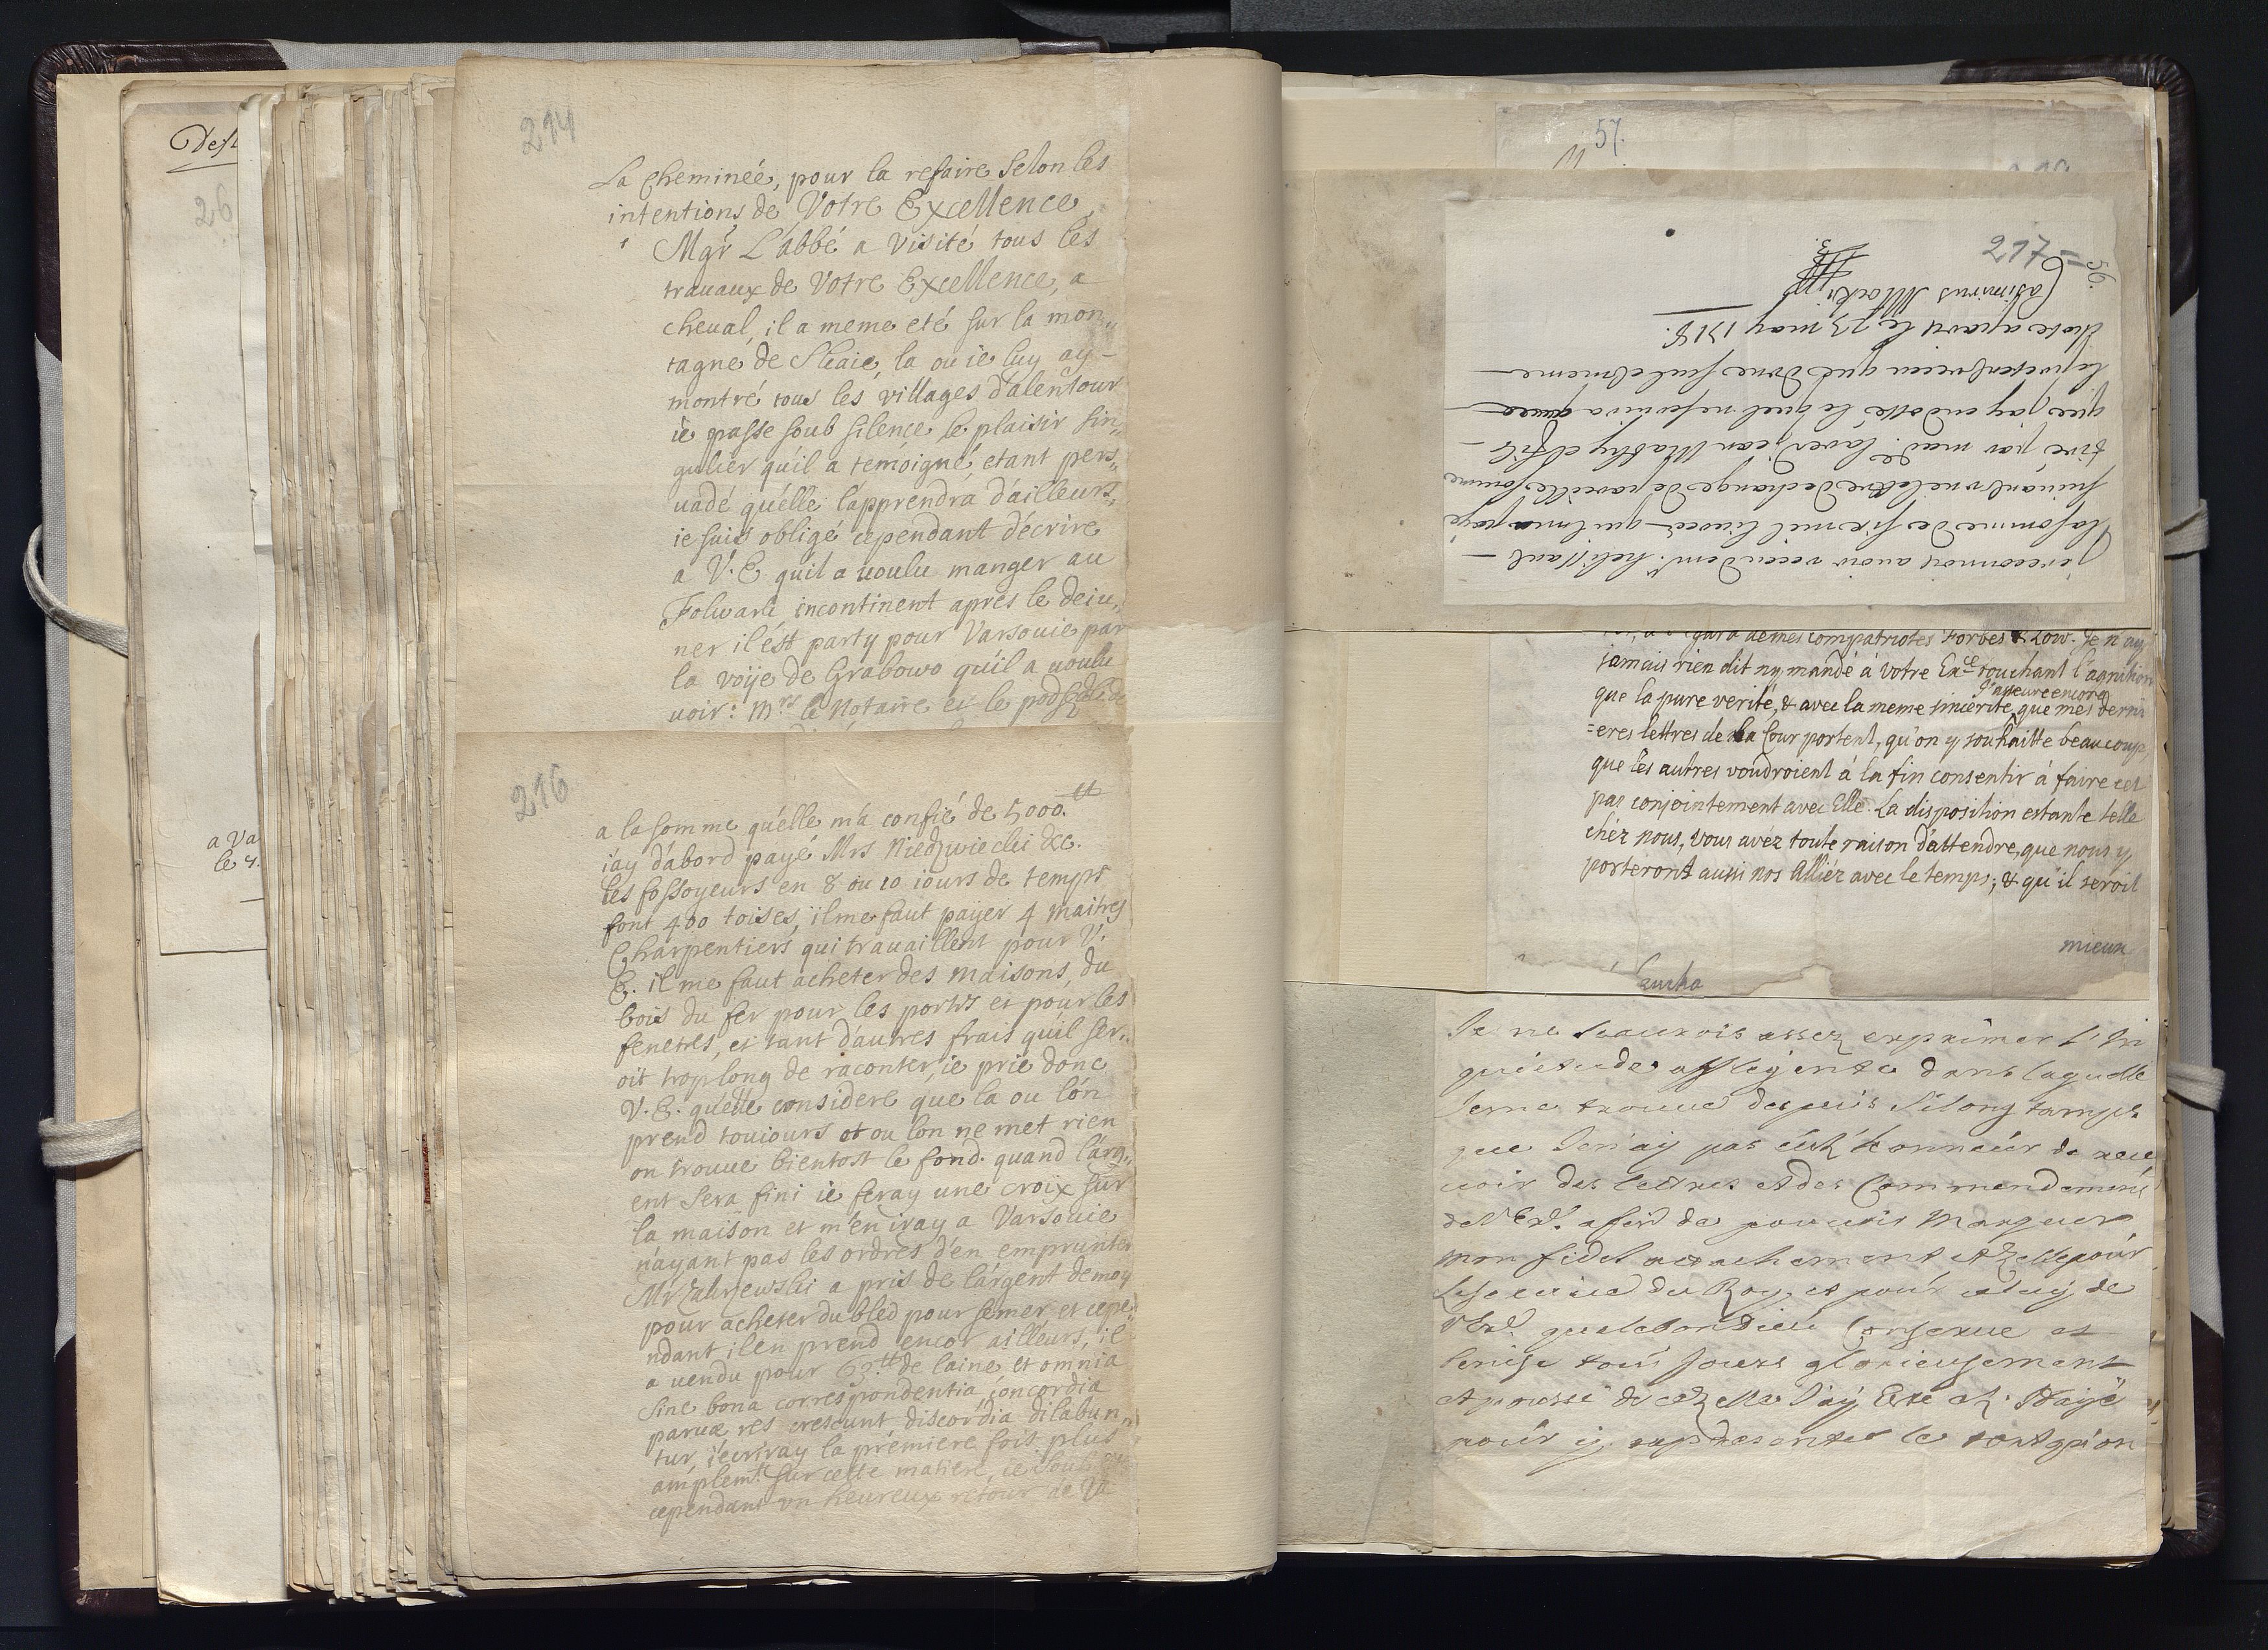 Dest
26
a Va
le 4.
214
La Cheminée, pour la refaire Selon les
intentions de Votre Excellence
Mgr L'abbé a visité tous les
travaux de Votre Excellence, a
cheval, il a meme eté sur la mon„
tagne de Skaie, la ou ie luy ay
montré tous les villages d'alentour
ie passe soub silence le plaisir sin„
gulier qu'il a temoigné, etant pers„
uadé qu'elle l'apprendra d'ailleurs,
ie suis obligé cependant d'ecrire
a V. E qu'il a voulu manger au
Folwark incontinent apres le deiu„
ner il est party pour Varsovie par
la voije de Grabowo qu'il a voulu
voir: Mrs le Notaire et le
216
a la somme qu'elle m'a confié de 5000.tt
i'ay d'abord payé Mrs Niedzwiecki &c.
les fossoyeurs en 8 ou 10 iours de temps
font 400 toises, il me faut payer 4 maitres
Charpentiers qui travaillent pour V.
E. il me faut acheter des maisons, du
bois du fer pour les portes et pour les
fenetres, et tant d'autres frais qu'il ser„
oit trop long de raconter, ie prie donc
V. E. qu'elle considere que la ou l'on
prend touiours et ou l'on ne met rien
on trouve bientost le fond. quand l'arg„
ent sera fini ie feray une croix sur
la maison et m'en iray a Varsovie
n'ayant pas les ordres d'en emprunter
Mr Zakrzewski a pris de l'argent de moy
pour acheter du bled pour semer et cepe„
ndant il en prend encor ailleurs, il
a vendu pour 63.tt de laine et omnia
sine bona correspondentia concordia
parvæ res crescunt discordia dilabun„
tur, i'ecriray la premiere fois plus
amplemt. sur cette matiere, ie
cependant un heureux retour de
57.
217
56.
Je reconnois avoir receu de mr. helissant
la somme de six mil livres qui ma payé
suivant une lettre de change de pareille somme
tiré par made. la ver. jean Mathy et fils
que jay endossé le quel ne servira avec
le present receu que dune seul et meme
chose a paris le 23 may 1718.
Casimirus
gard de mes compatriotes Forbes & Low. Je n'ay
jamais rien dit ny mandé à Votre Exce. touchant l'agnition
que la pure verité, & avec la meme sincerité J'asseure encore que mes derni
=eres lettres de la Cour portent, qu'on y souhaitte beaucoup,
que les autres voudroient à la fin consentir à faire cet
pas conjointement avec Elle. La disposition estante telle
chéz nous, vous avéz toute raison d'attendre, que nous y
porteront aussi nos Alliéz avec le temps; & qu'il seroit
mieux
Je ne scaurois assez exprimer l'in
quietude affligente dans laquelle
Je me trouve depuis Si long temps
que Je n'ay pas eu l'honneur de rece
voir des lettres et des Commendements
de V Ex. afin de pouvoir marquer
mon fidel attachement et Zelle pour
le service du Roy, et pour celuy de
V Ex. que le bon Dieu Conserve et
benisse tous Jours glorieusement
et poussé de ce Zelle J'ay Esté a la Haÿe
pour y representer le